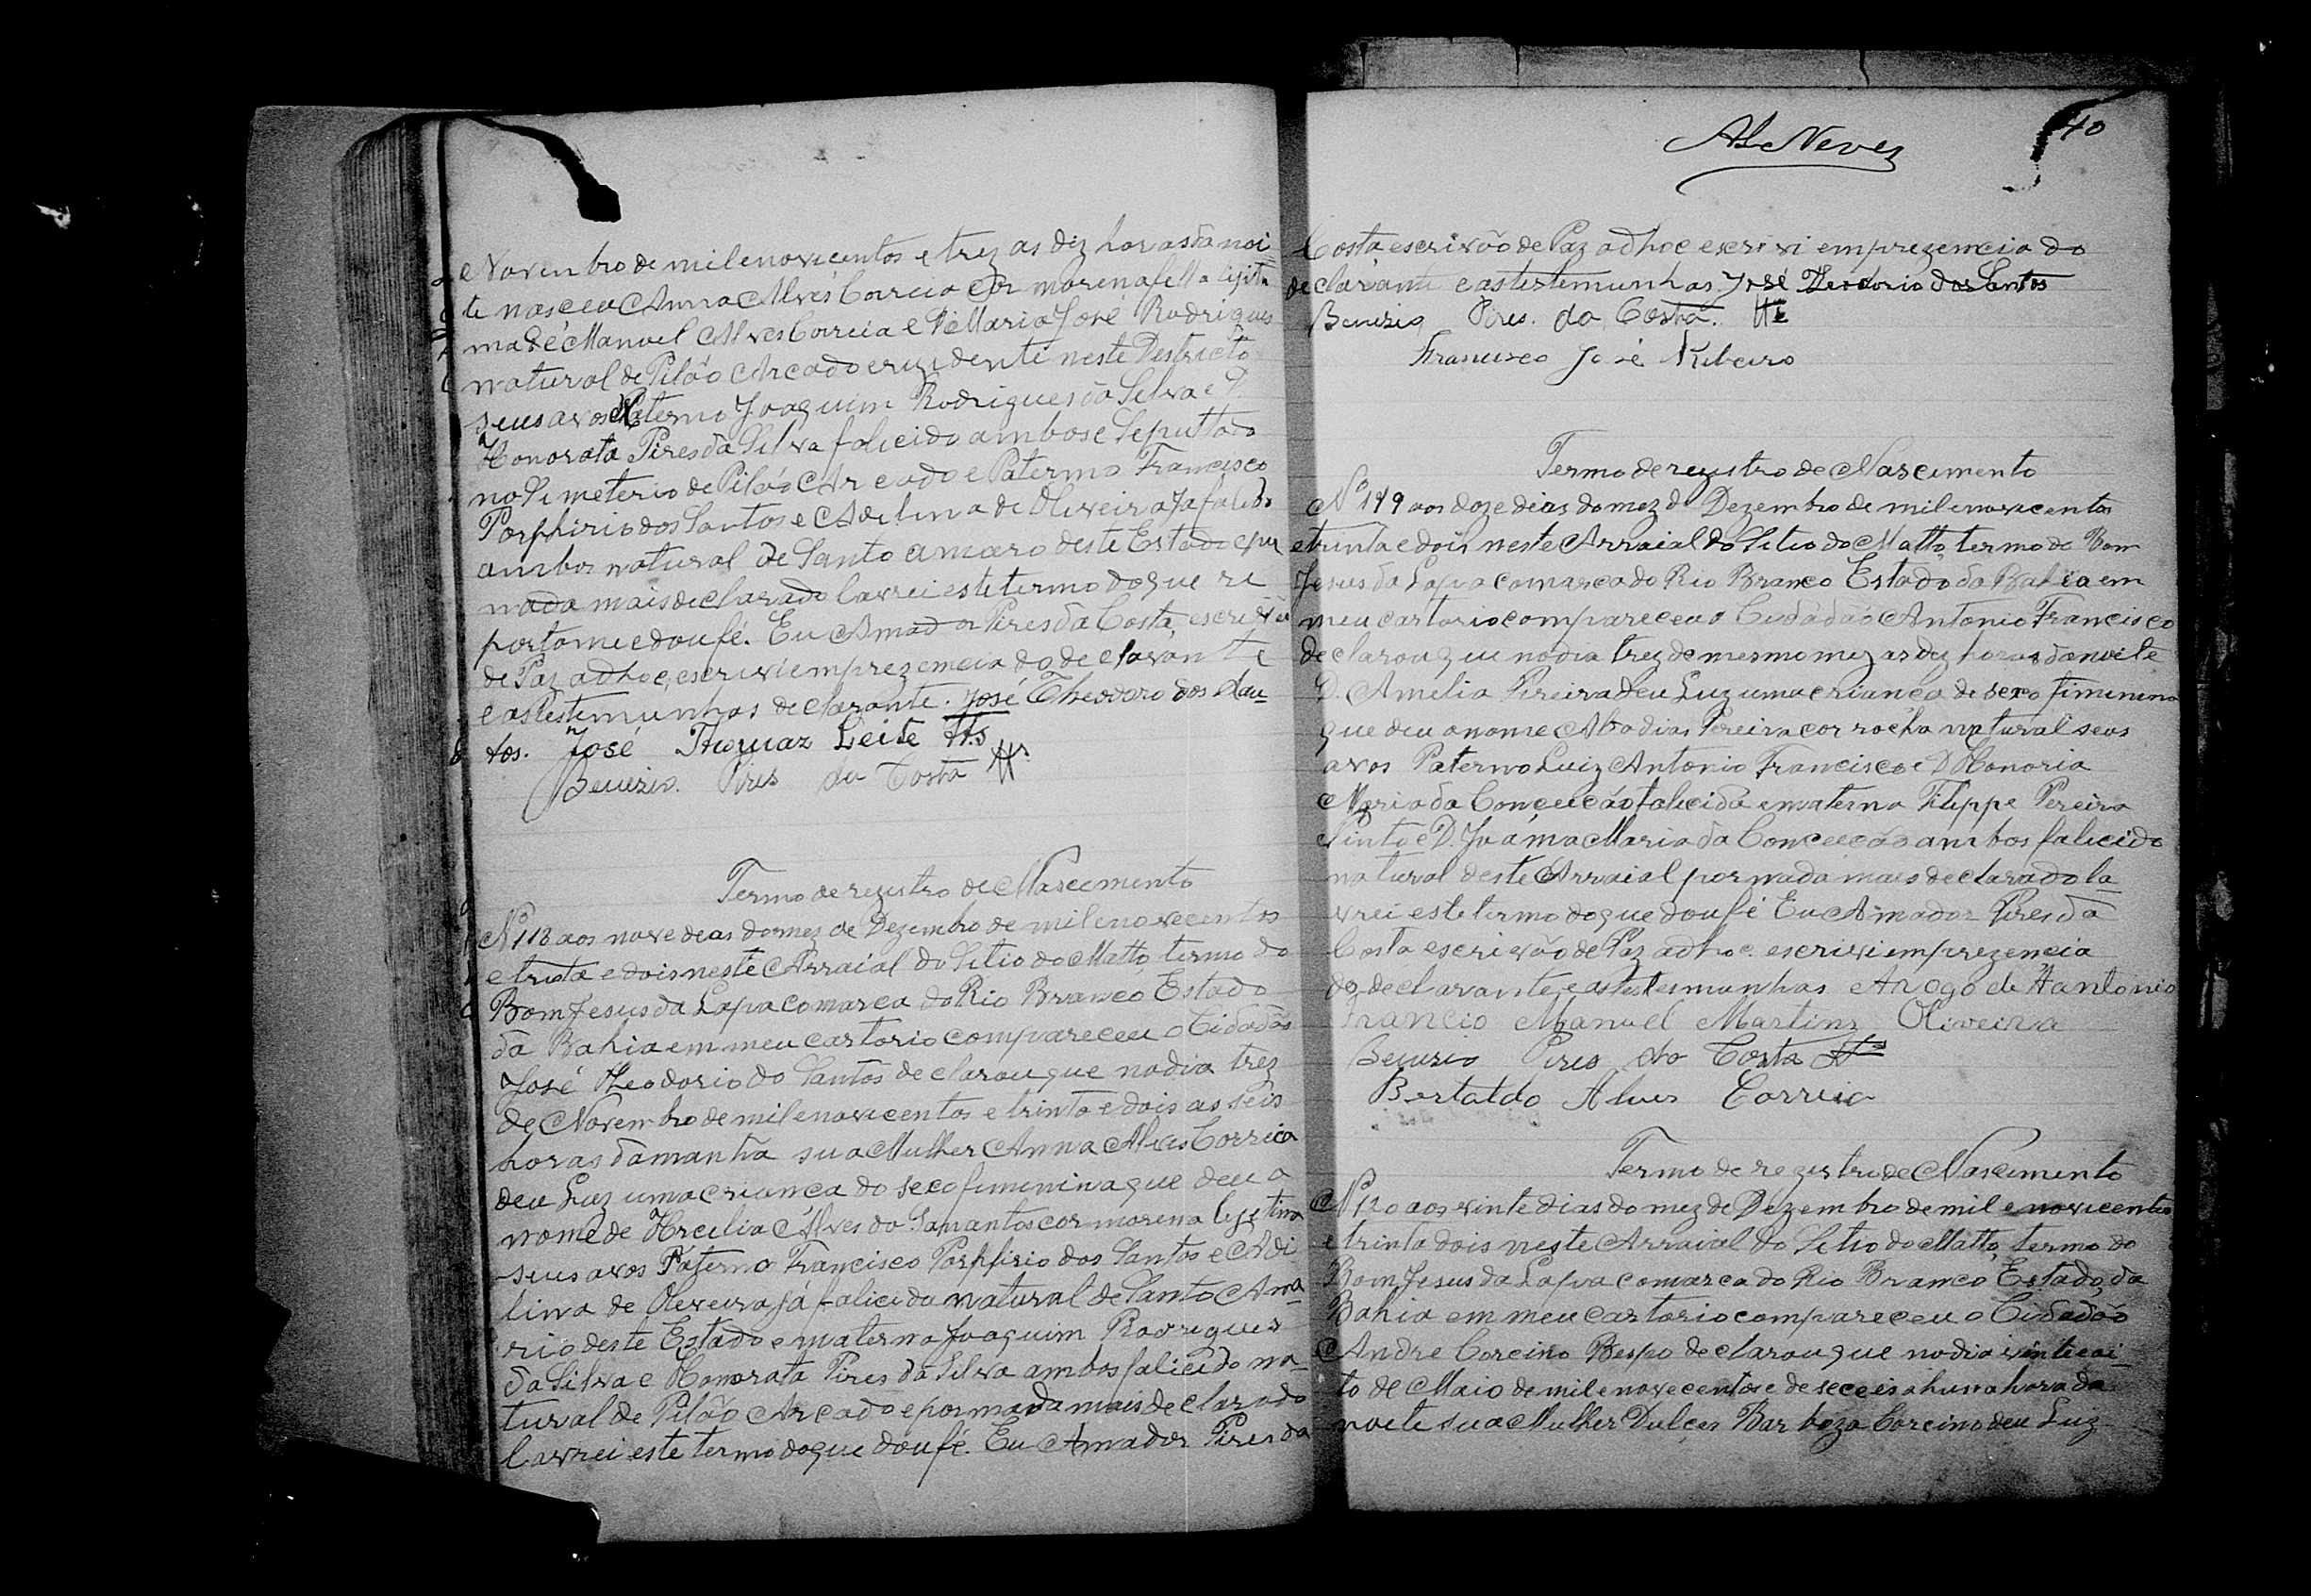 Novembro de mil e novecentos e trez as diz horas da noi
te nasceu Anna Alves Correia cor morena filha legiti
ma de Manuel Alves Correia e D Maria José Rodrigues
natural de Pilão Arcado e rezidente neste Destricto
seus avos Materno Joaquim Rodrigues da Silva e D.
Honorata Pires da Silva falicido ambos e Sepultado
no Simeterio de Pilão Arcado e Paterno Francisco
Porphirio dos Santos e Adelina de Oliveira Ja falicido
ambos natural de Santo amaro deste Estado e por
nada mais declarado lavrei este termo do que re
porto me e dou fé. Eu Amador Pires da Costa, escrivão
de Paz ad hoc, escrivi em prezencia do declarante
e as testemunhas declarante. José Theodoro dos San-
tos. José Thomaz Leite tts
Benizio. Pires da Costa tts
Termo de registro de Nascimento
Nº 118 aos nove dias do mez de Dezembro de mil e novecentos
e trinta e dois neste Arraial do Sitio do Matto, termo do
Bom Jesus da Lapa comarca do Rio Branco Estado
da Bahia em meu cartorio compareceu o Cidadão
José Theodorio do Santos declarou que no dia trez
de Novembro de mil e novecentos e trinta e dois as seis
horas da manha sua Mulher Anna Alves Correia
deu Luz uma crianca do seco fimenina que deu o
nome de Hrcilia Alves do Sanantos cor morena legetima
seus avos Paterno Francisco Porphirio dos Santos e Adi
lina de Oleveira já falicido natural de Santo Ama
rio deste Estado e materno Joaquim Rodrigues
da Silva e Honorata Pires da Silva ambos falicido na-
tural de Pilão Arcado e por nada mais declarado
lavrei este termo do que dou fé. Eu Amador Pires da
40
Al Neves
Costa escrivão de Paz ad hoc escrivi em prezencia do
declarante e as testemunhas José Theodorio dos Santos
Benizio Pires. da Costa. tts
Francisco José Ribeiro
Termo de registro de Nascimento
Nº 119 aos doze dias do mez de Dezembro de mil e novecentos
e trinta e dois neste Arraial do Sitio do Matto, termo do Bom
Jesus da Lapa comarca do Rio Branco Estado da Bahia em
meu cartorio compareceu o Cidadão Antonio Francisco
declarou que no dia trez do mesmo mez as dez horas da noite
D. Amelia Pereira deu Luz uma criança de seco fimenino
que deu o nome Abadias Pereira cor rocha natural seus
avos Paterno Luiz Antonio Francisco e D Honoria
Maria da Conceicão falicida e materno Filippe Pereira
Pinto e D. Joánna Maria da Conceicão ambos falicido
natural deste Arraial por nada mais declarado la
vrei este termo do que dou fé Eu Amador Pires da
Costa escrivão de Paz ad hoc. escrivi em prezencia
do declarante e as testesmunhas Arogo de Hantonio
Francio Manuel Martins Oliveira
Benizio Pires da Costa tts
Bertaldo Alves Correia
Termo de registro de Nascimento
Nº 120 aos vinte dias do mez de Dezembro de mil e novicentos
e trinta dois neste Arraial do Sitio do Matto, termo do
Bom Jesus da Lapa comarca do Rio Branco Estado, da
Bahia em meu cartorio compareceu o Cidadão
Andre Corcino Bespo declarou que no dia vinte oi-
to de Maio de mil e novecentos e deseceis a huma hora da
noite sua Mulher Dulces Barboza Corcino deu Luz